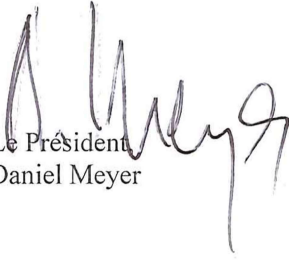 Le Président,
Daniel Meyer